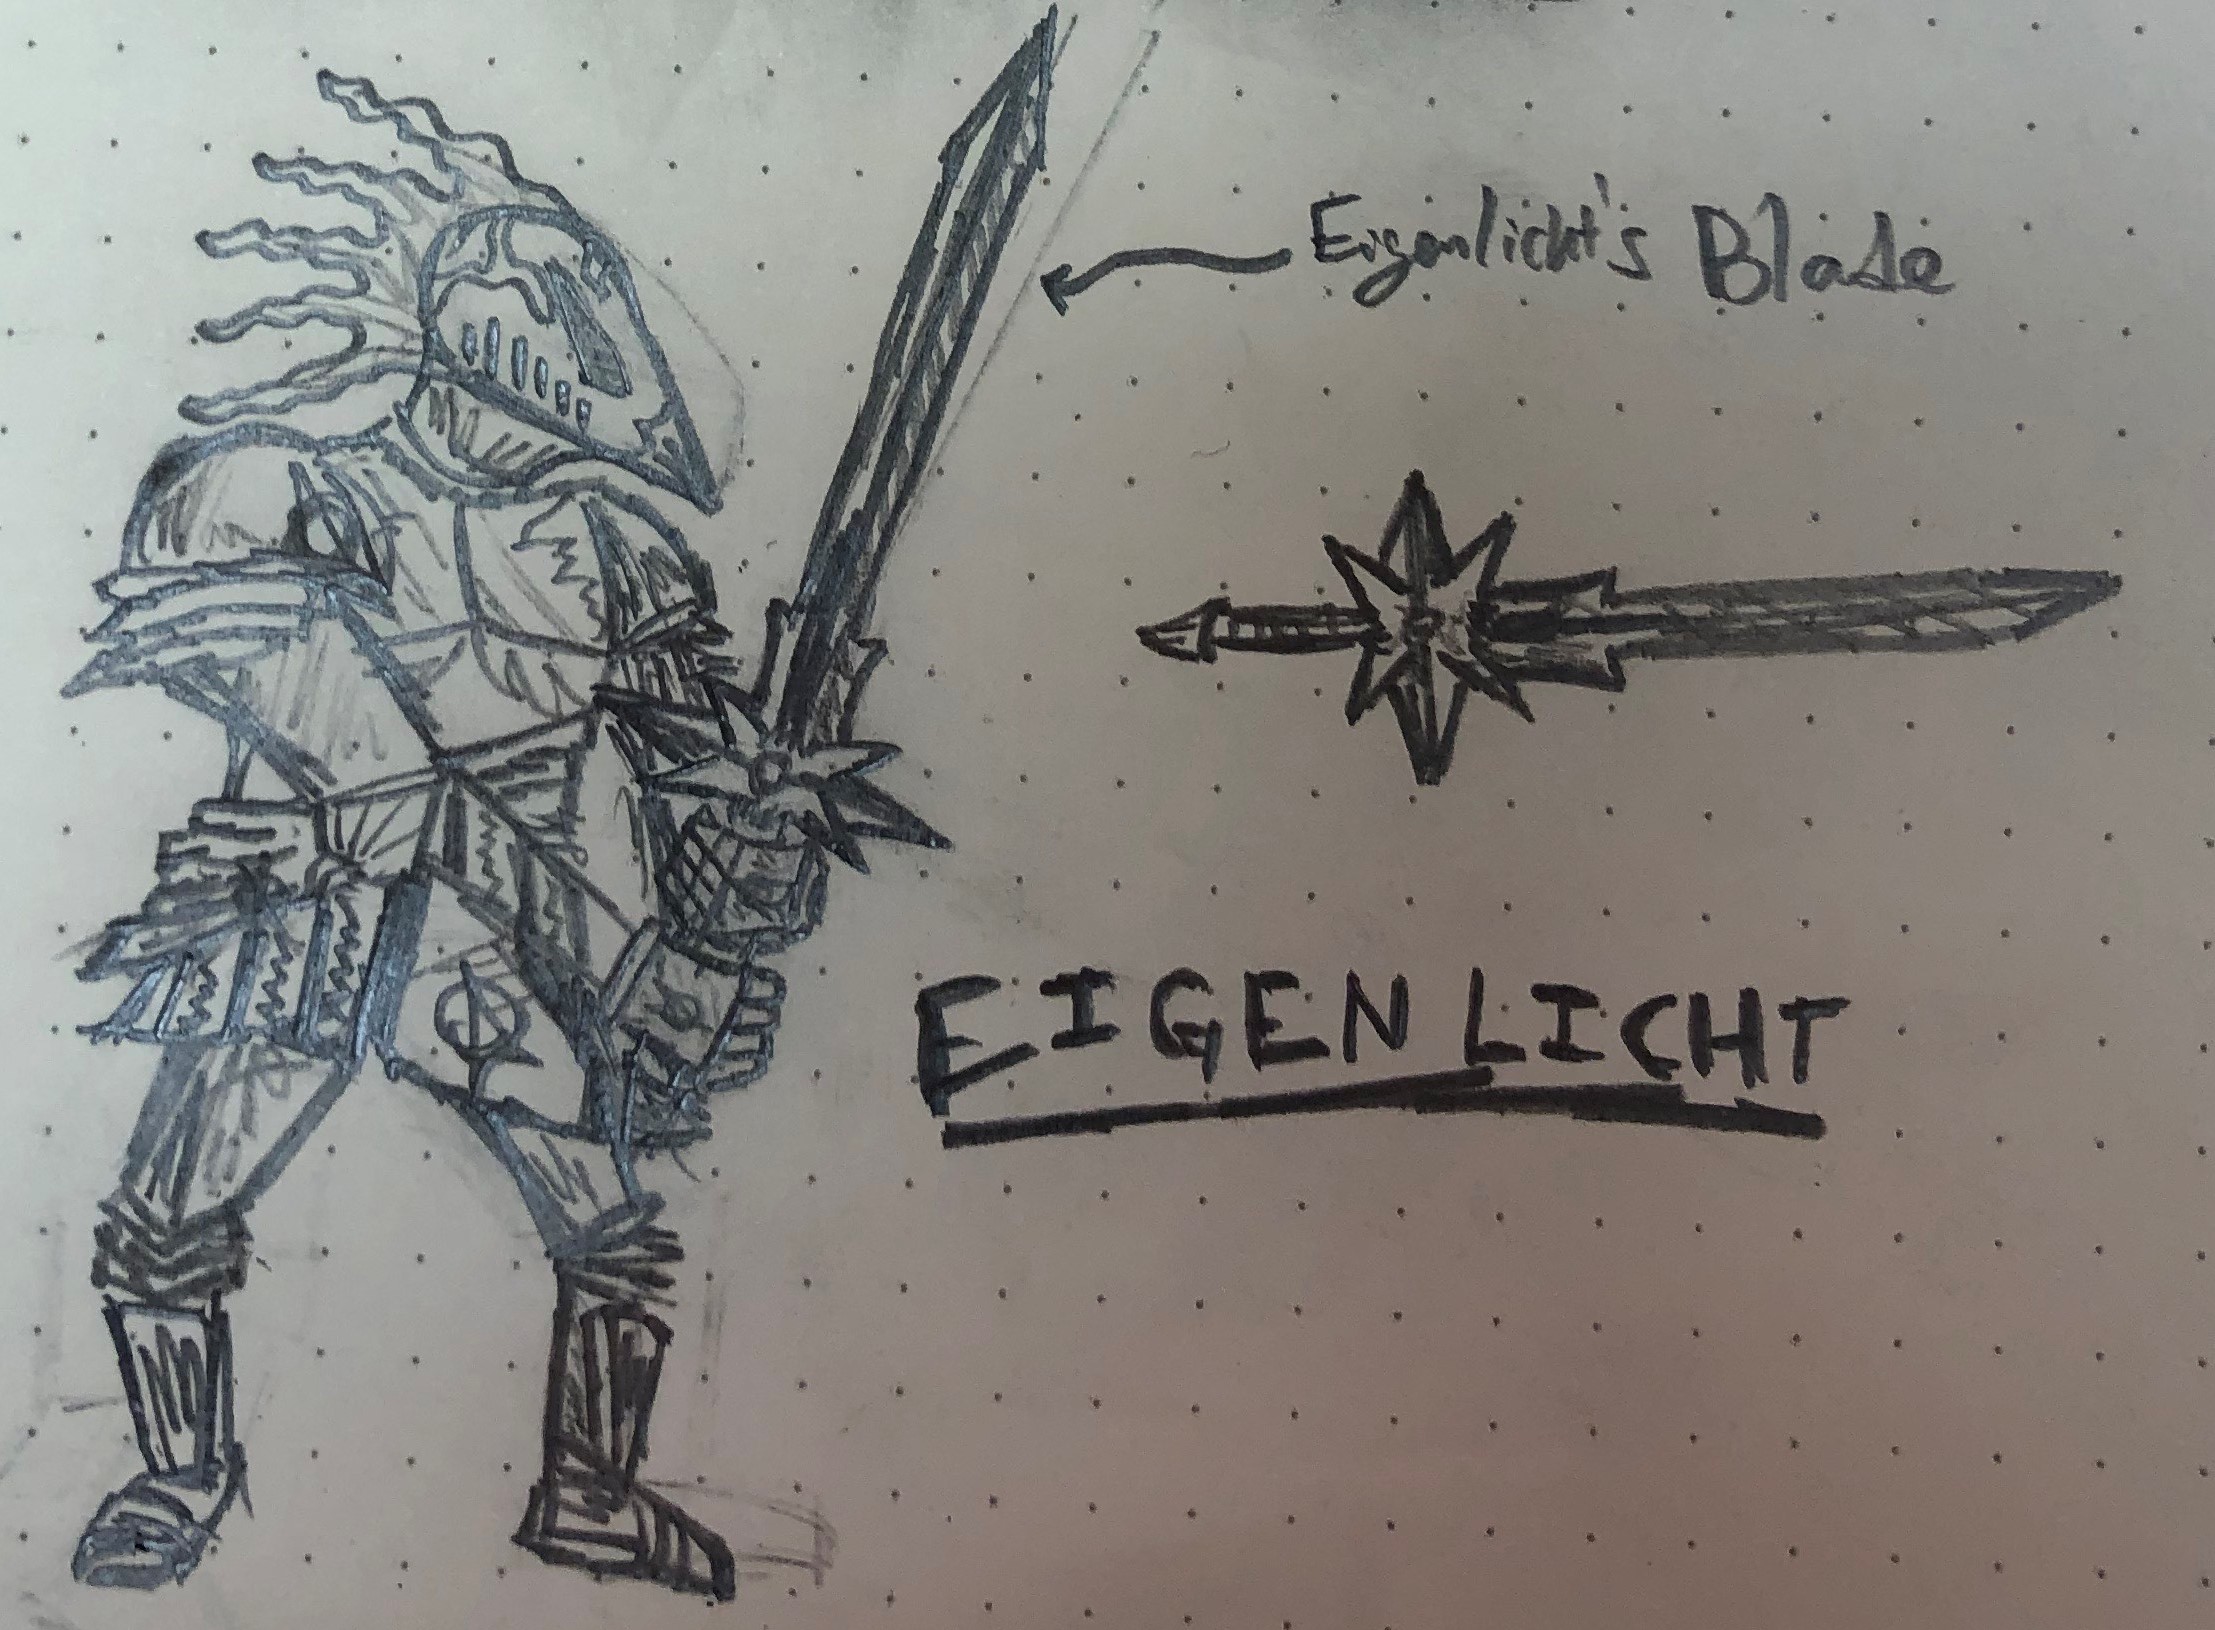 Eigenlicht's Blade
EIGENLICHT